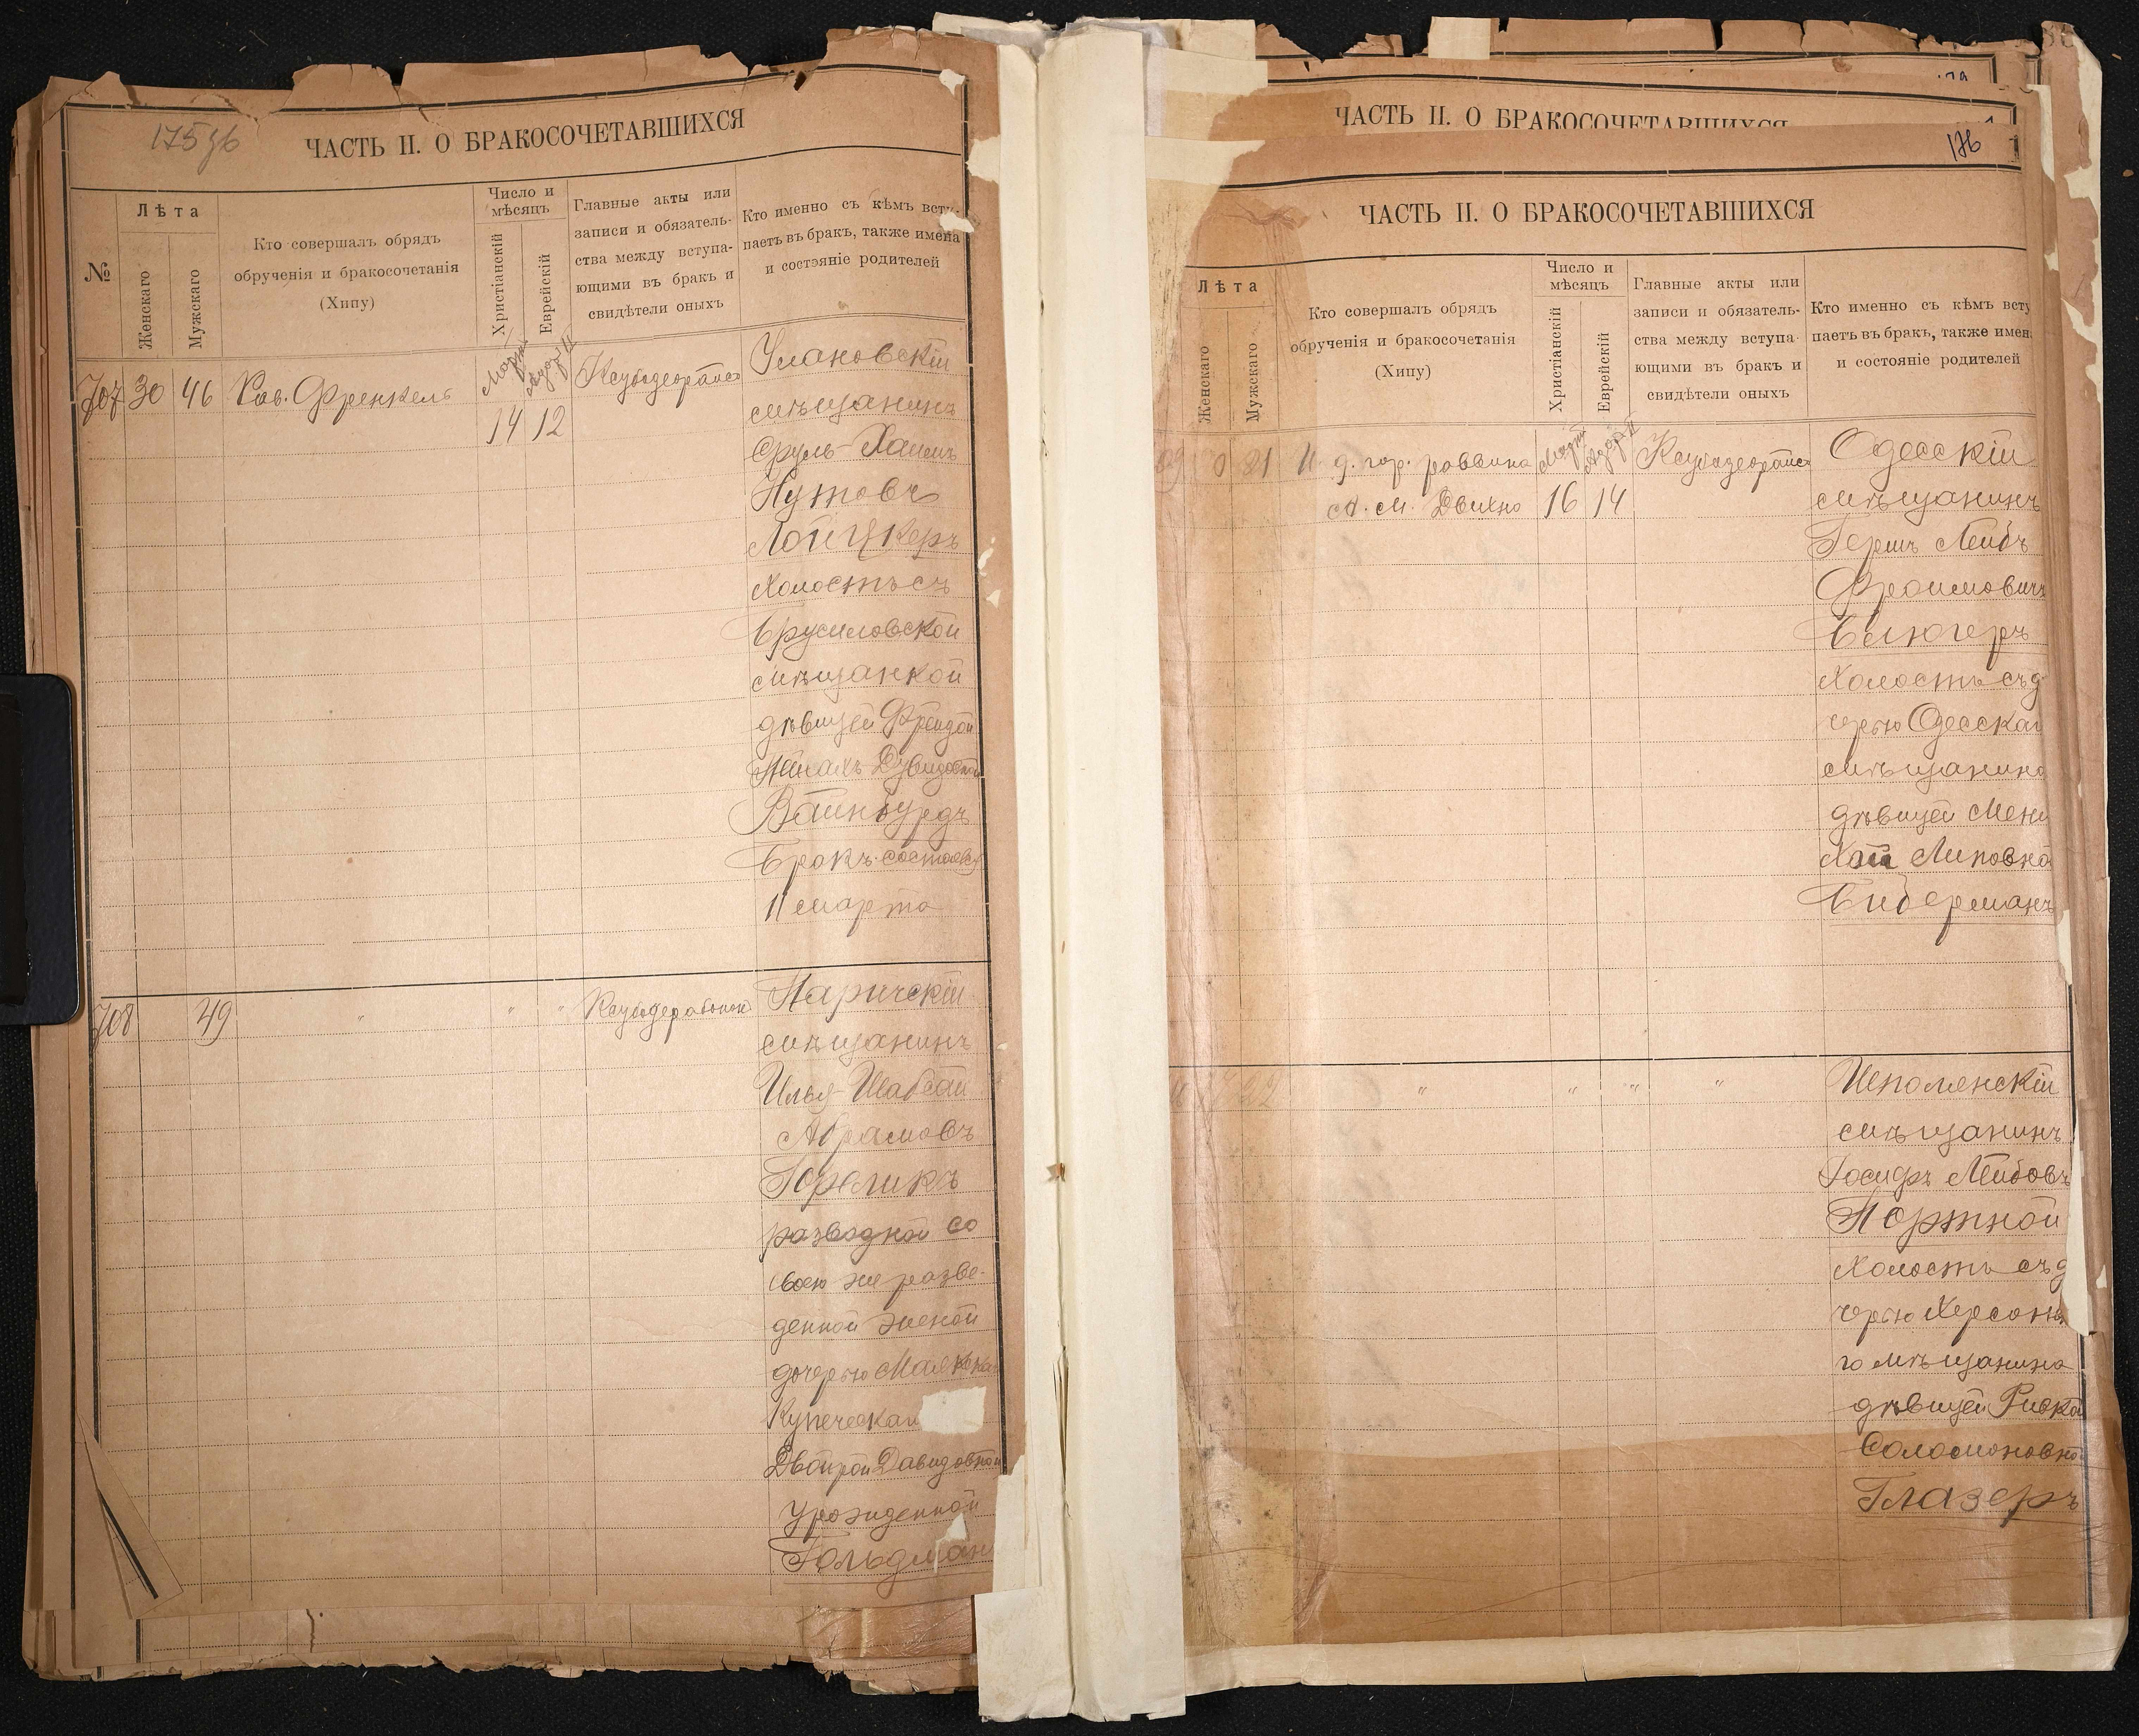 175 об
ЧАСТЬ II. О БРАКОСОЧЕТАВШИХСЯ
№
Лѣта
Женскаго
Мужскаго
Кто совершалъ обрядъ
обрученія и бракосочетанія
(Хипу)
Число и
мѣсяцъ
Христіанскій
Еврейскій
Главные акты или
записи и обязатель-
ства между вступа-
ющими въ бракъ и
свидѣтели оныхъ
Кто именно съ кѣмъ всту-
паетъ въ бракъ, также имена
и состояніе родителей
707 30 46 Рав. Френкель
Мартъ
14 12
Улановскій
мѣщанинъ
Сруль-Хаимъ
Нутовъ
Лойцкеръ
холостъ съ
Брусиловской
мѣщанкой
дѣвицей Фрейдой
Вайнбурдъ
Бракъ состоялся
11 марта
708 49 " " "
Паричскій
мѣщанинъ
Илья-Шабсай
Абрамовъ
Гореликъ
разводной со
своею же разве-
денной женой
дочерью
Купеческаго
Двойрой Давидовной
урожденной
Гольдман
ЧАСТЬ II. О БРАКОСОЧЕТАВШИХСЯ
176
ЧАСТЬ II. О БРАКОСОЧЕТАВШИХСЯ
Лѣта
Женскаго
Мужскаго
Кто совершалъ обрядъ
обрученія и бракосочетанія
(Хипу)
Число и
мѣсяцъ
Христіанскій
Еврейскій
Главные акты или
записи и обязатель-
ства между вступа-
ющими въ бракъ и
свидѣтели оныхъ
Кто именно съ кѣмъ всту
паетъ въ бракъ, также имен
и состояніе родителей
21 И. д. гор. раввина
Мартъ
А. М. Двихно
16 14
Одесскій
мѣщанинъ
Гершъ Лейбъ
Фроимовичъ
Блюгеръ
холостъ съ д
черью Одесскаг
мѣщанина
дѣвицей Мени
Хаей Липовно
Бидерманъ
22 " " " "
Шполянскій
мѣщанинъ
Іосифъ Лейбовъ
Портной
холостъ съ д
черью Херсонск
го мѣщанина
дѣвицей Ривко
Соломоновно
Глазеръ